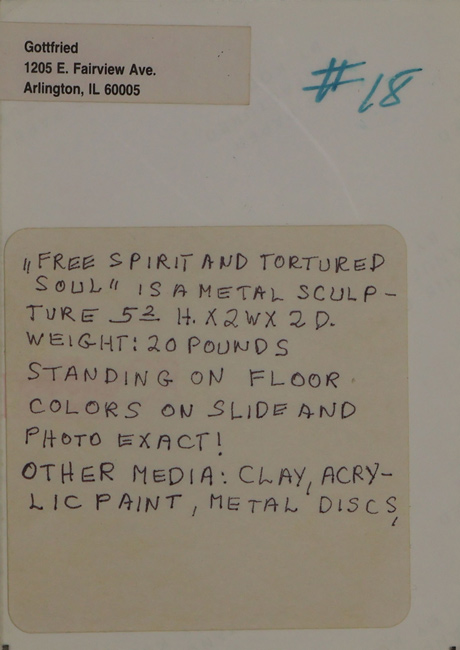 Gottfried
1205 E. Fairview Ave.
Arlington, IL 60005
#18
„FREE SPIRIT AND TORTURED
SOUL" IS A METAL SCULP-
TURE 52 H. X 2W X 2 D.
WEIGHT: 20 POUNDS
STANDING ON FLOOR
COLORS ON SLIDE AND
PHOTO EXACT!
OTHER MEDIA: CLAY, ACRY-
LIC PAINT, METAL DISCS,